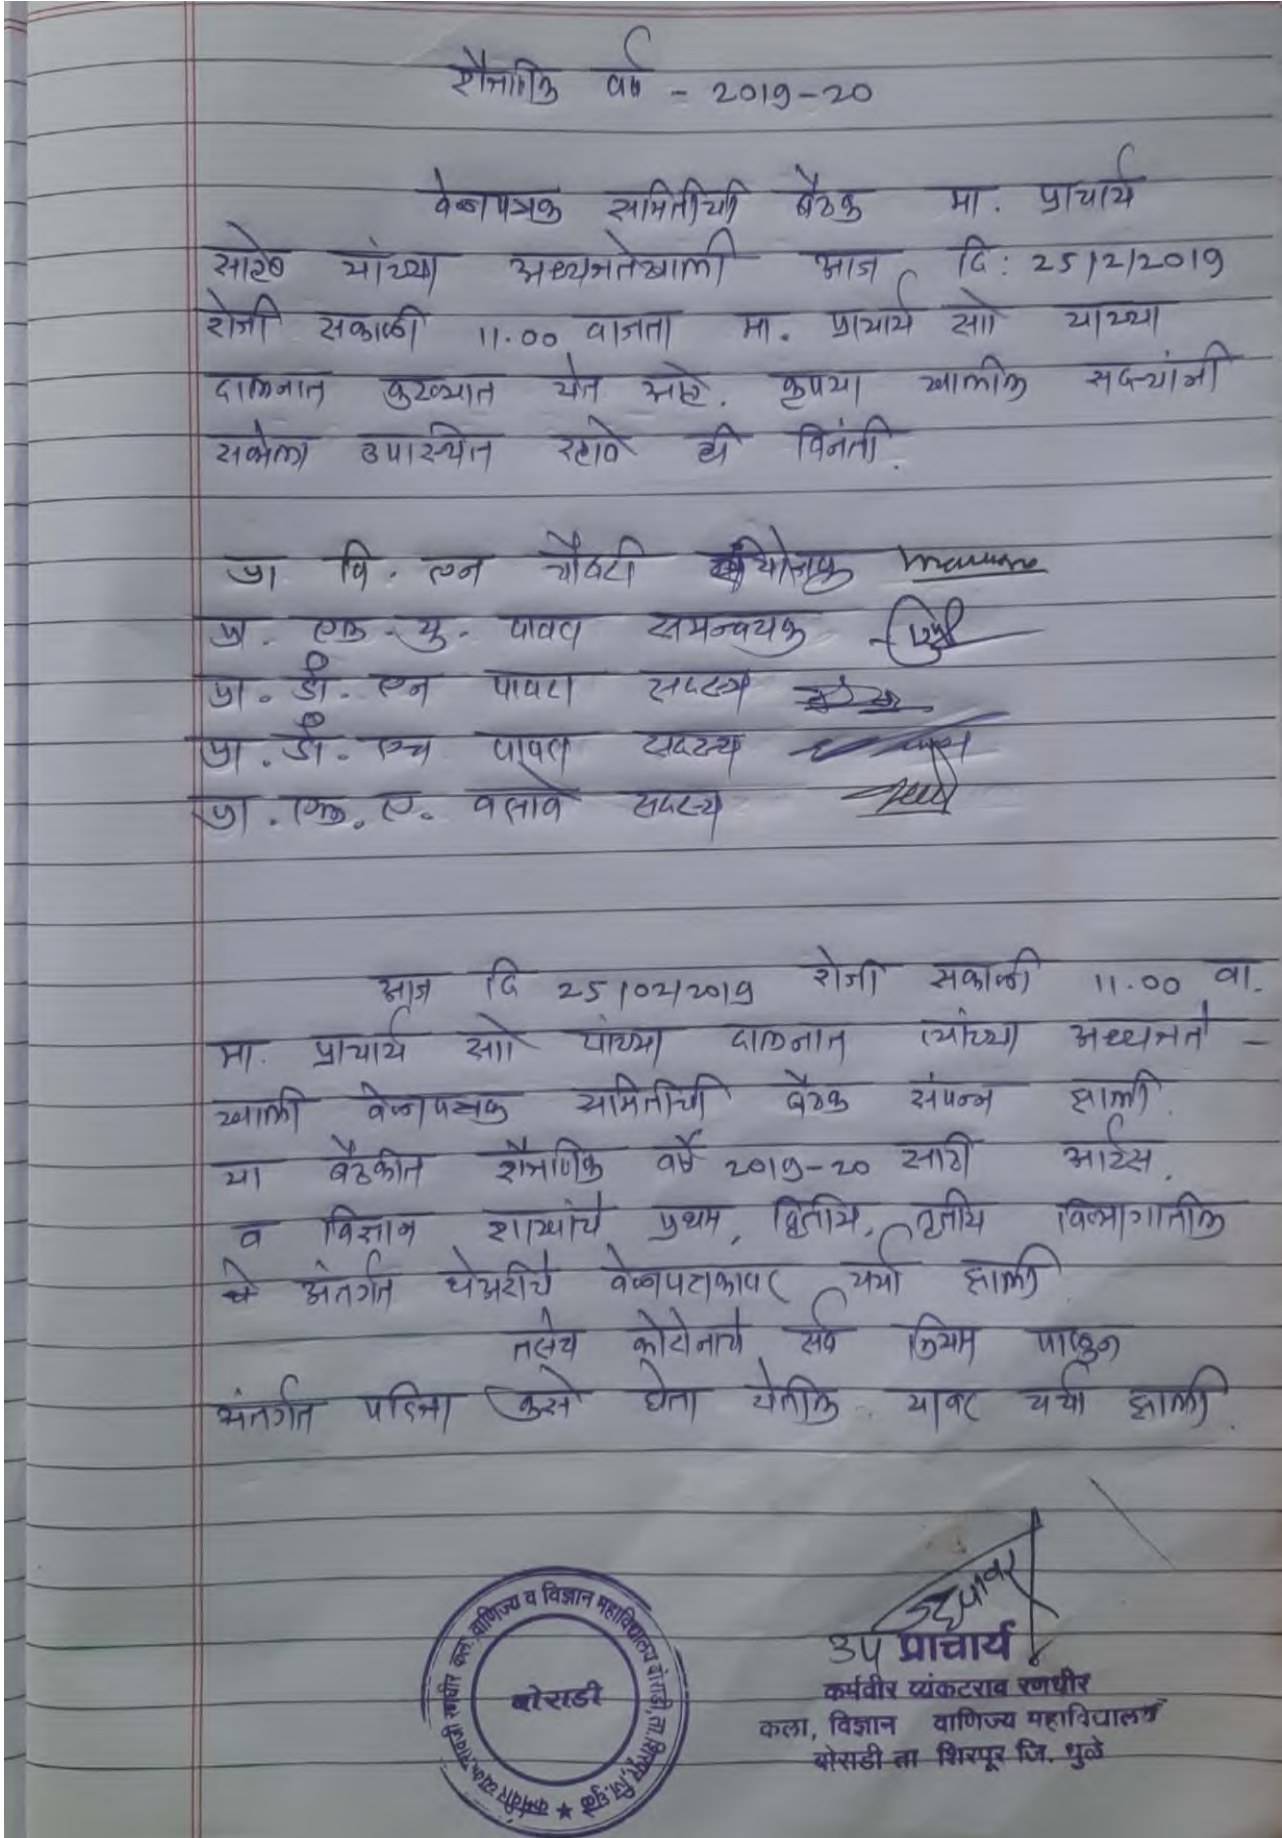 शैक्षणिक वर्ष - 2019-20
वेळापत्रक समितीची बैठक मा. प्राचार्य
साहेब यांच्या अध्यक्षतेखाली आज दि: 25/2/2019
रोजी सकाळी 11.00 वाजता मा. प्राचार्य सो याच्या
दालनात करण्यात येत आहे. कृपया खालील सदस्यांनी
सभेला उपास्थित रहावे ही विनंती.
प्रा वि. एन चौधरी संयोजक
प्रा. एल. यु. पावरा समन्वयक
प्रा. डी. एन पावरा सदस्य
प्रा. डी. एच पावरा सदस्य
प्रा. एल. ए. वसावे सदस्य
आज दि 25/02/2019 रोजी सकाळी 11.00 वा.
मा. प्राचार्य सो यांच्या दालनात त्यांच्या अध्यक्षते -
खाली वेळापत्रक समितीची बैठक संपन्न झाली.
या बैठकीत शैक्षणिक वर्षे 2019-20 साठी आर्टस.
व विज्ञान शाखांचे प्रथम, द्वितीय, तृतीय विभागातील
अंतर्गत थेअरीचे वेळापत्रकावर चर्चा झाली
तसेच कोरोनाचे सर्व नियम पाळून
अंतर्गत परिक्षा कसे घेता येतील यावर चर्चा झाली.
उप प्राचार्य
कर्मवीर व्यंकटराव रणधीर
कला, विज्ञान वाणिज्य महाविद्यालय
बोराडी ता शिरपूर जि. धुळे
कला, वाणिज्य व विज्ञान महाविद्यालय बोराडी, ता. शिरपूर, जि. धुळे
बोराडी